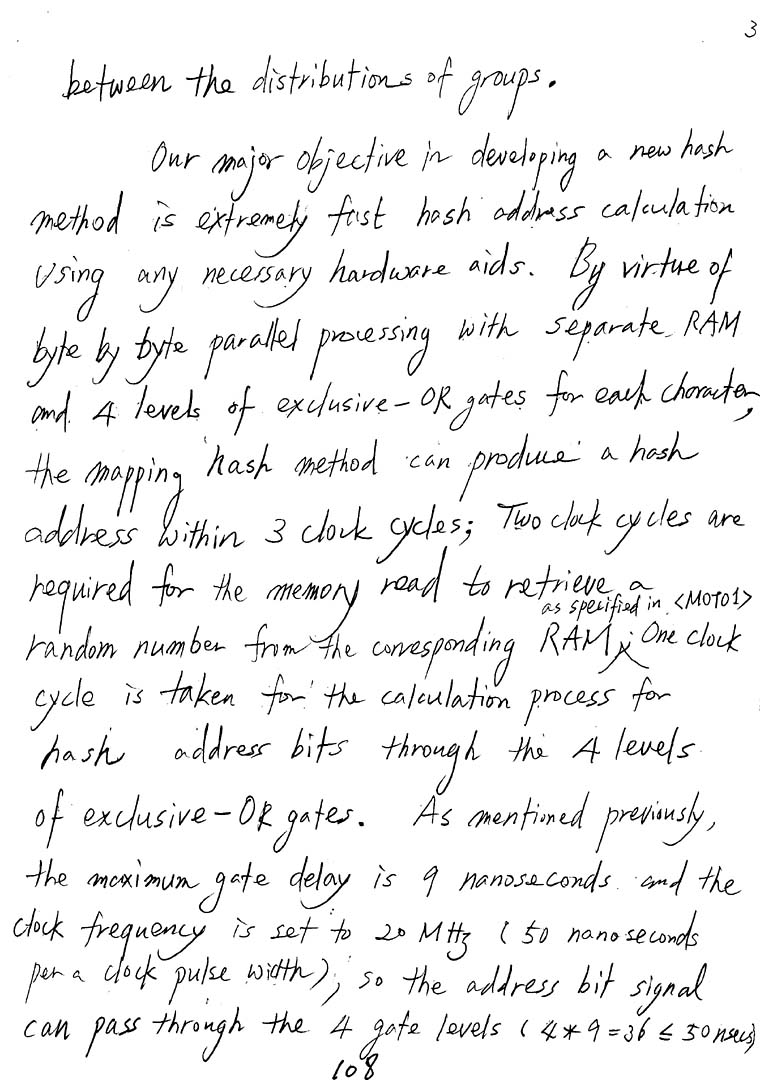 3
between the distributions of groups.
Our major objective in developing a new hash
method is extremely fast hash address calculation
using any necessary hardware aids. By virtue of
byte by byte parallel processing with separate RAM
and 4 levels of exclusive-OR gates for each character,
the mapping hash method can produce a hash
address within 3 clock cycles; Two clock cycles are
required for the memory read to retrieve a
as specified in <MOTO1>
random number from the corresponding RAM; One clock
cycle is taken for the calculation process for
hash address bits through the 4 levels
of exclusive-OR gates. As mentioned previously,
the maximum gate delay is 9 nanoseconds and the
clock frequency is set to 20 MHz (50 nanoseconds
per a clock pulse width), so the address bit signal
can pass through the 4 gate levels (4*9=36 ≤ 50 nsecs)
108